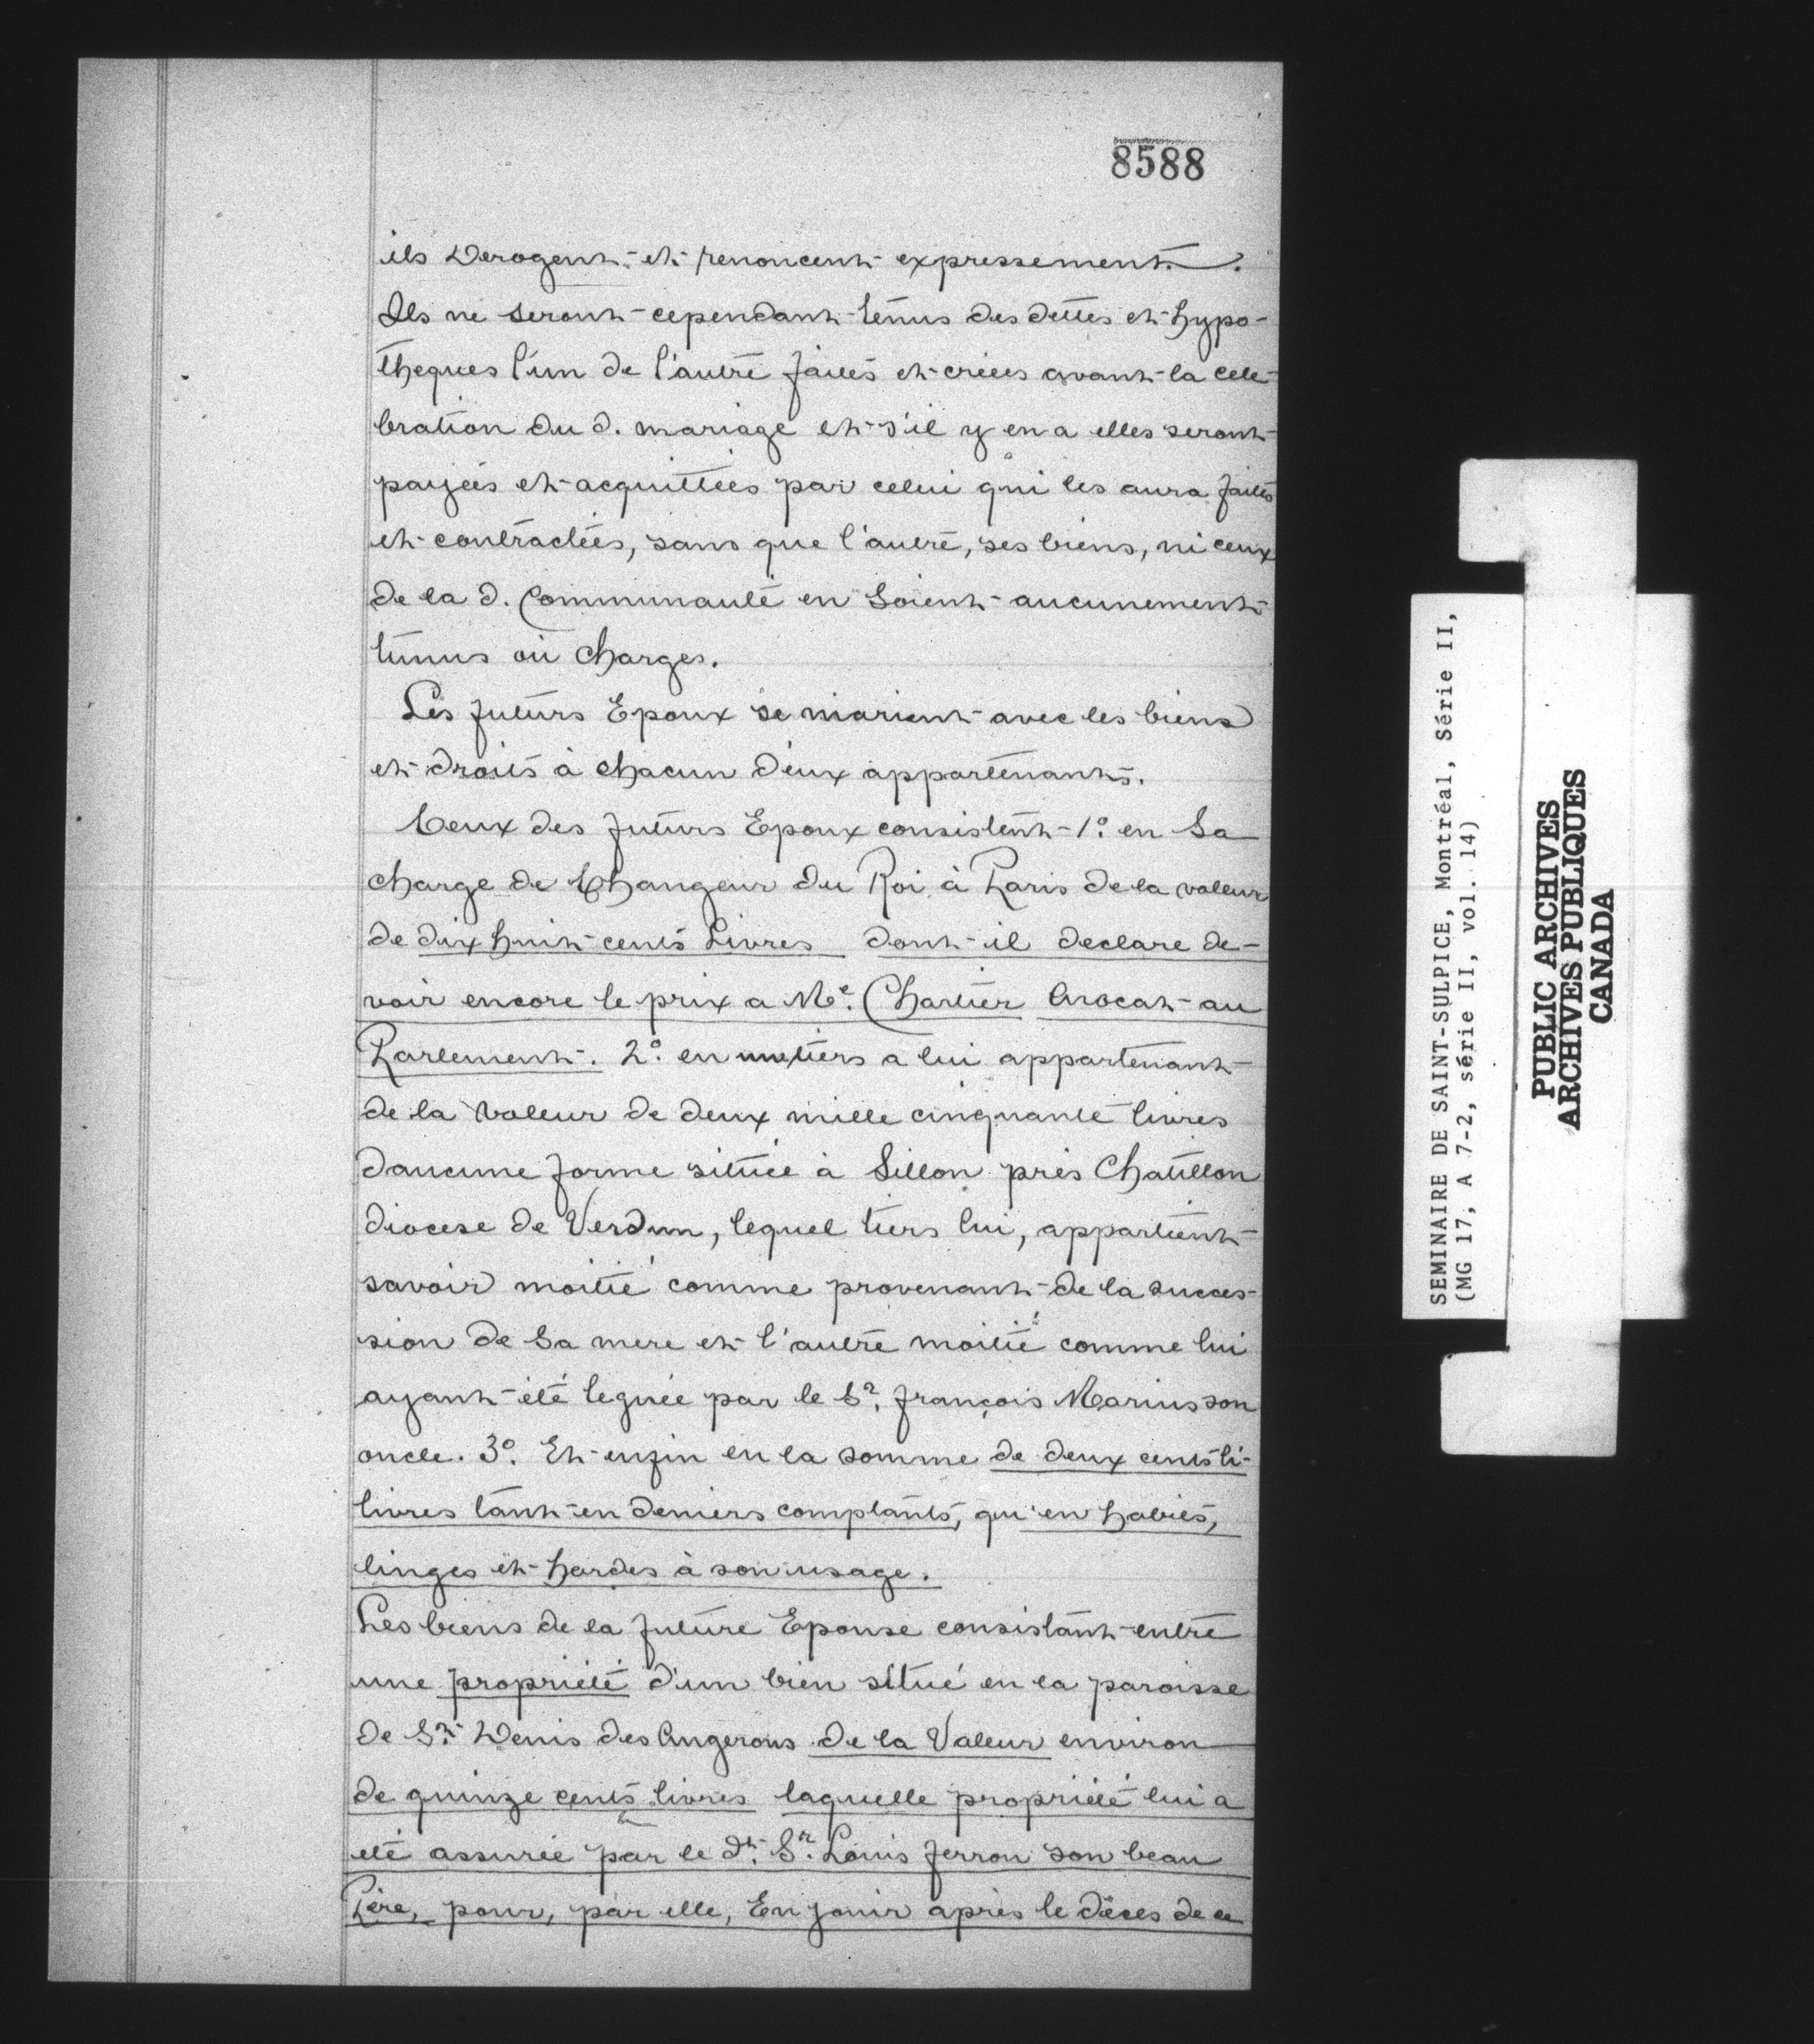 8588
ils Derogent et renoncent expressement.
Ils ne seront cependant tenus des dettes et hypo-
theques l'un de l'autre faites et créées avant la cele-
bration du d. mariage et s'il y en a elles seront
payées et acquittées par celui qui les aura faites
et contractées, sans que l'autre, ses biens, ni ceux
de la d. Communauté en soient aucunement
tenus ou charges.
Les futurs Epoux se marient avec les biens
et droits à chacun d'eux appartenants.
Ceux des futurs Epoux consistent 1º. en sa
charge de Changeur du Roi à Paris de la valeur
de dix huit cents Livres dont il declare de-
voir encore le prix a Me. Chartier Avocat au
Parlement. 2º. en un tiers a lui appartenant
de la valeur de deux mille cinquante livres
daucune forme située à Sillon près Chatillon
diocese de Verdun, lequel tiers lui, appartient
savoir moitié comme provenant de la succes-
sion de sa mere et l'autre moitié comme lui
ayant été leguée par le Sr. françois Marius son
oncle. 3º. Et enfin en la somme de deux cents li-
livres tant en deniers comptants, qu'en habits,
linges et hardes à son usage.
Les biens de la future Epouse consistant entre
une propriété d'un bien situé en la paroisse
de St. Denis des Augerons de la Valeur environ
de quinze cents livres laquelle propriété lui a
été assurée par le dt. Sr. Louis ferron son beau
Père, pour, par elle, En jouir après le décès de ce
SEMINAIRE DE SAINT-SULPICE, Montréal, Série II,
(MG 17, A 7-2, série II, vol. 14)
PUBLIC ARCHIVES
ARCHIVES PUBLIQUES
CANADA